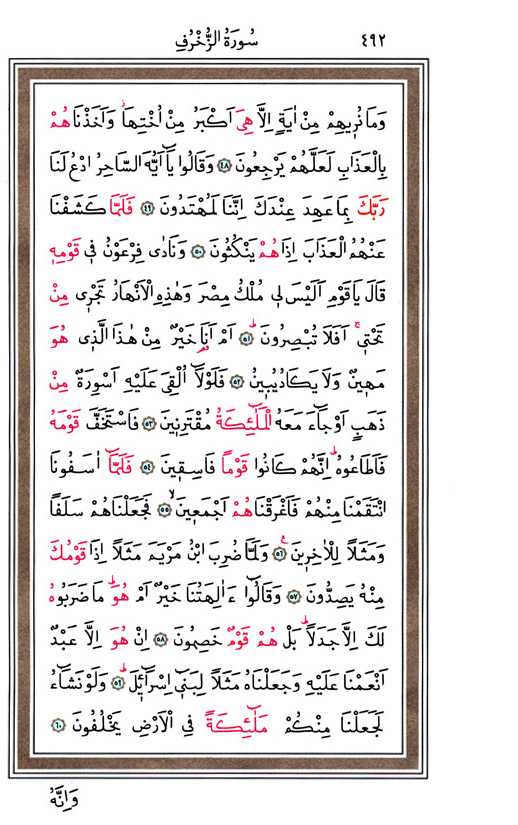 سُورَةُ الزُّخْرُفِ ٤٩٢
وَمَا نُرِيهِمْ مِنْ اٰيَةٍ اِلَّا هِيَ اَكْبَرُ مِنْ اُخْتِهَاۘ وَاَخَذْنَاهُمْ
بِالْعَذَابِ لَعَلَّهُمْ يَرْجِعُونَ ﴿٤٨﴾ وَقَالُوا يَٓا اَيُّهَ السَّاحِرُ ادْعُ لَنَا
رَبَّكَ بِمَا عَهِدَ عِنْدَكَ اِنَّنَا لَمُهْتَدُونَ ﴿٤٩﴾ فَلَمَّا كَشَفْنَا
عَنْهُمُ الْعَذَابَ اِذَا هُمْ يَنْكُثُونَ ﴿٥٠﴾ وَنَادٰى فِرْعَوْنُ فِي قَوْمِهِ
قَالَ يَا قَوْمِ اَلَيْسَ لِي مُلْكُ مِصْرَ وَهٰذِهِ الْاَنْهَارُ تَجْرِي مِنْ
تَحْتِيۚ اَفَلَا تُبْصِرُونَۜ ﴿٥١﴾ اَمْ اَنَا خَيْرٌ مِنْ هٰذَا الَّذِي هُوَ
مَهِينٌ وَلَا يَكَادُ يُبِينُ ﴿٥٢﴾ فَلَوْلَٓا اُلْقِيَ عَلَيْهِ اَسْوِرَةٌ مِنْ
ذَهَبٍ اَوْ جَٓاءَ مَعَهُ الْمَلٰٓئِكَةُ مُقْتَرِنِينَ ﴿٥٣﴾ فَاسْتَخَفَّ قَوْمَهُ
فَاَطَاعُوهُۜ اِنَّهُمْ كَانُوا قَوْمًا فَاسِقِينَ ﴿٥٤﴾ فَلَمَّٓا اٰسَفُونَا
انْتَقَمْنَا مِنْهُمْ فَاَغْرَقْنَاهُمْ اَجْمَعِينَۙ ﴿٥٥﴾ فَجَعَلْنَاهُمْ سَلَفًا
وَمَثَلًا لِلْاٰخِرِينَ۟ ﴿٥٦﴾ وَلَمَّا ضُرِبَ ابْنُ مَرْيَمَ مَثَلًا اِذَا قَوْمُكَ
مِنْهُ يَصِدُّونَ ﴿٥٧﴾ وَقَالُٓوا ءَاٰلِهَتُنَا خَيْرٌ اَمْ هُوَۜ مَا ضَرَبُوهُ
لَكَ اِلَّا جَدَلًاۜ بَلْ هُمْ قَوْمٌ خَصِمُونَ ﴿٥٨﴾ اِنْ هُوَ اِلَّا عَبْدٌ
اَنْعَمْنَا عَلَيْهِ وَجَعَلْنَاهُ مَثَلًا لِبَنِٓي اِسْرَٓائِيلَۜ ﴿٥٩﴾ وَلَوْ نَشَٓاءُ
لَجَعَلْنَا مِنْكُمْ مَلٰٓئِكَةً فِي الْاَرْضِ يَخْلُفُونَ ﴿٦٠﴾
وَاِنَّهُ